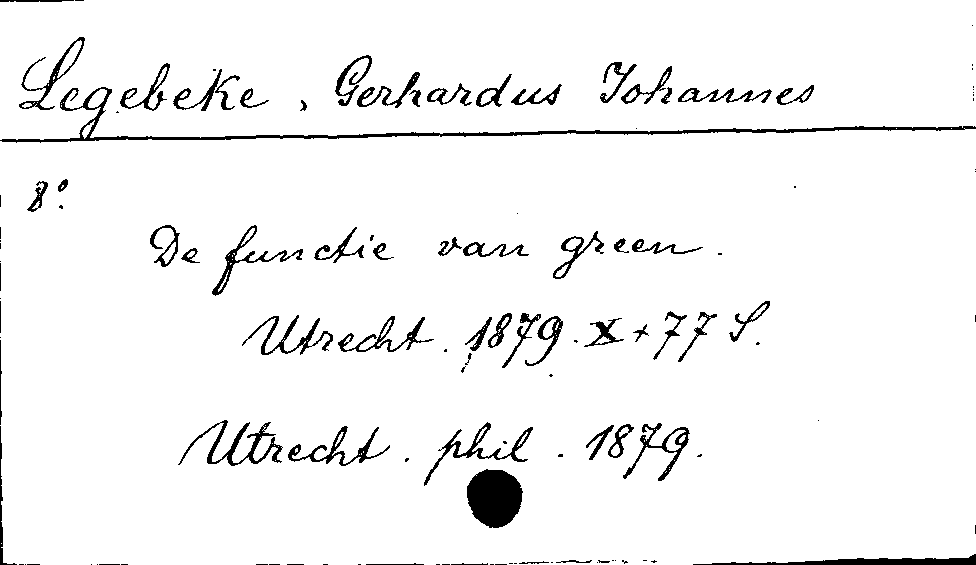 Legebeke, Gerhardus Johannes
8°.
De functie van green.
Utrecht. 1879. X + 77 S.
Utrecht. phil. 1879.